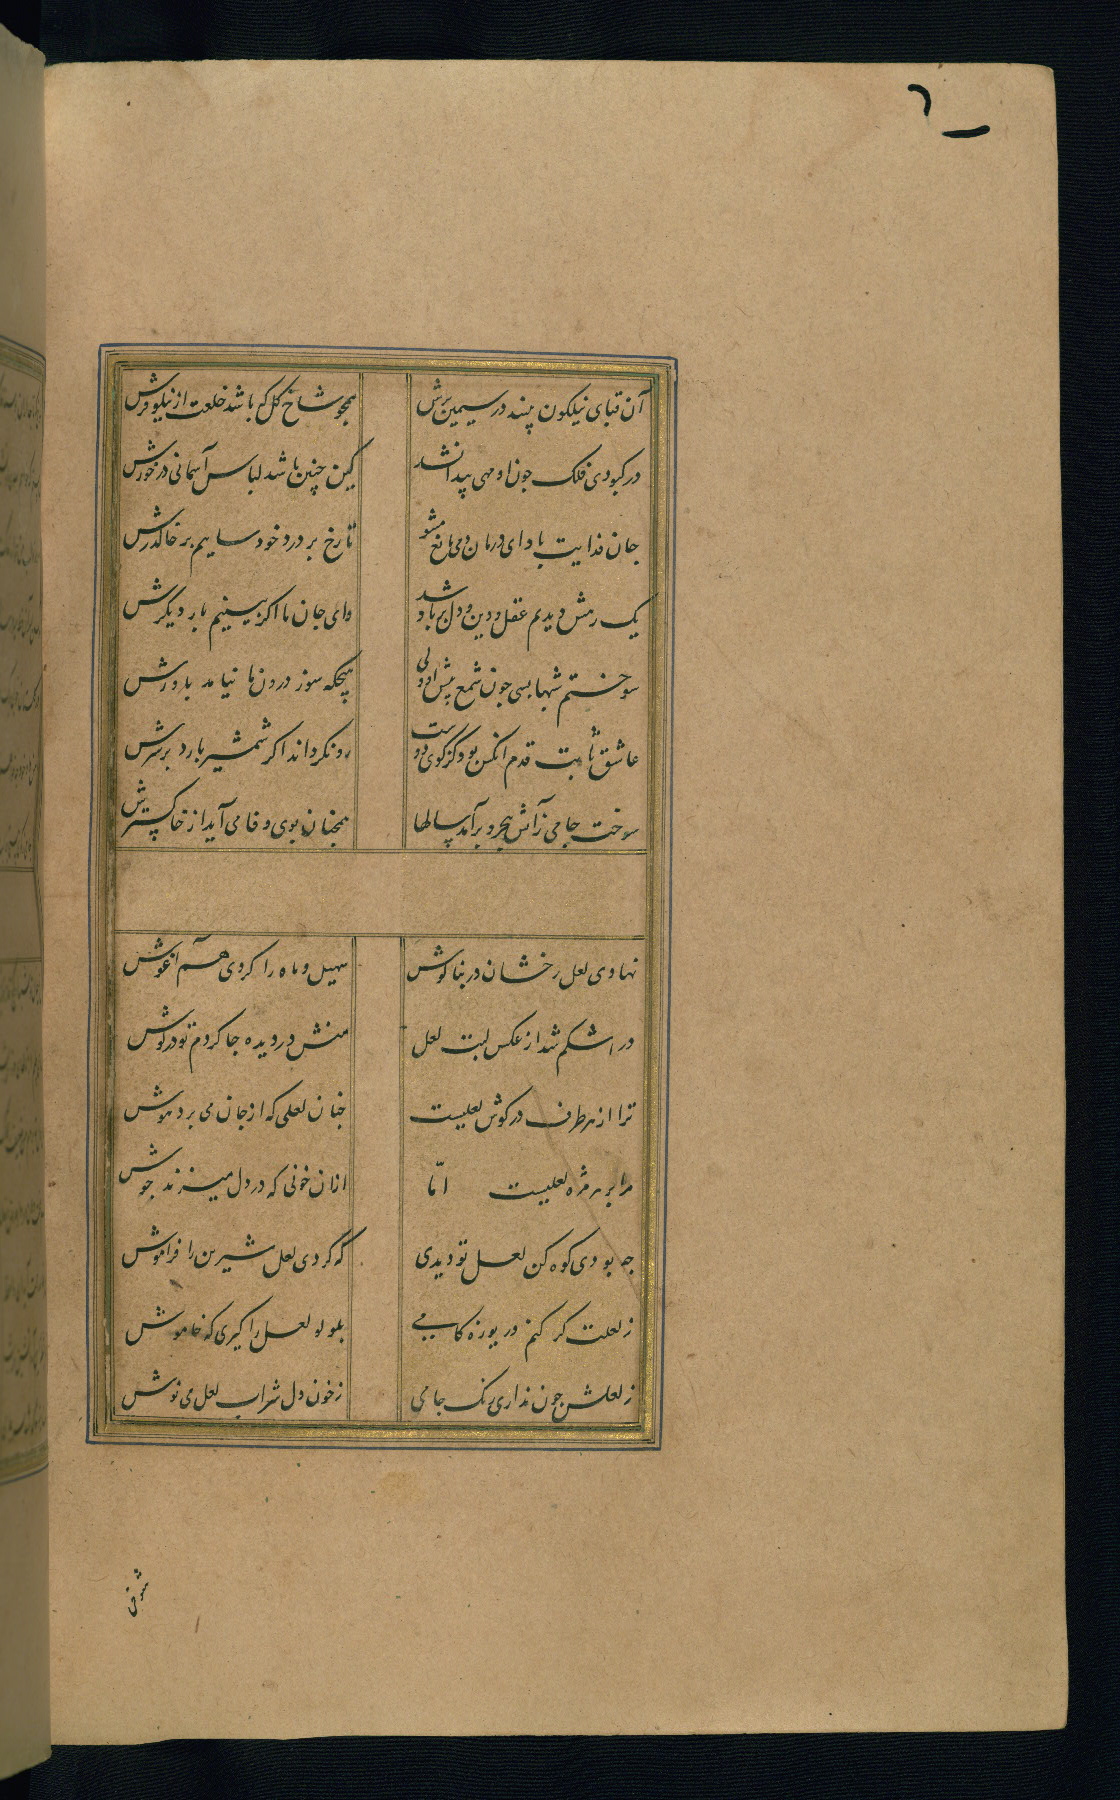 آن قبای نیلگون بیند در سیمین برش
همچو شاخ گل که باشد خلعت از نیلوفرش
در کبودی فلک چون او مهی پیدا نشد
کین چنین باشد لباس آسمانی در خورش
جان فدایت باد ای دربان دمی مانع مشو
تا رخ بر درد خود سایم بر خاک درش
یک رهش دیدم عقل و دین و دل بر باد شد
وای جان ما اگر بینیم بار دیگرش
سوختم شبها بسی چون شمع پیش او ولی
هیچگه سوز درون ما نیامد باورش
عاشق ثابت قدم آنکس بود کز کوی دوست
رو نگرداند اگر شمشیر بارد بر سرش
سوخت جامی ز آتش هجر و برآمد سالها
همچنان بوی وفا می آید از خاکسترش
نهادی لعل رخشان در بناگوش
سهیل و ماه را کردی هم آغوش
در اشکم شد از عکس لبت لعل
منش در دیده جا کردم تو در گوش
ترا از هر طرف در گوش لعلیست
چنان لعلی که از جان می برد هوش
مرا بر هر مژه لعلیست امّا
ازان خونی که در دل میزند جوش
چه بودی کوه کن لعل تو دیدی
که کردی لعل شیرین را فراموش
ز لعلت گر کنم دریوزه کامی
بلولو لعل را گیری که خاموش
ز لعلش چون نداری رنگ جامی
ز خون دل شراب لعل می نوش
شوخی